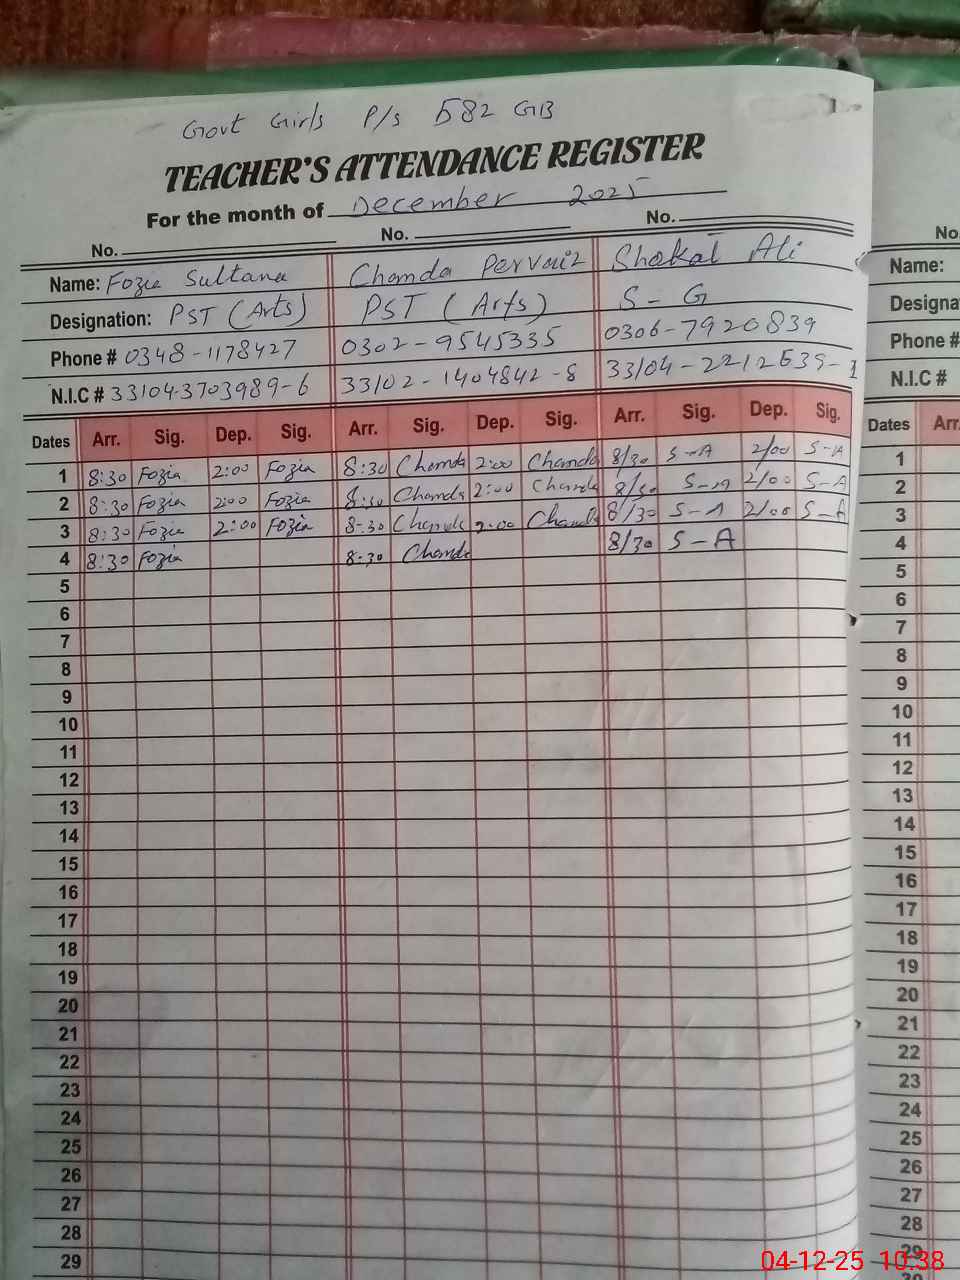 Govt Girls P/s 582 GB
TEACHER'S ATTENDANCE REGISTER
For the month of December 2025
No. No. No.
Name: Fozia Sultana Chanda Pervaiz Shokat Ali
Designation: PST (Arts) PST (Arts) S-G
Phone # 0348-1178427 0302-9545335 0306-7920839
N.I.C # 331043703989-6 33102-1404842-8 33104-2212639-1
Dates Arr. Sig. Dep. Sig. Arr. Sig. Dep. Sig. Arr. Sig. Dep. Sig.
1 8:30 Fozia 2:00 Fozia 8:30 Chanda 2:00 Chanda 8/30 S-A 2/00 S-A
2 8:30 Fozia 2:00 Fozia 8:30 Chanda 2:00 Chanda 8/30 S-A 2/00 S-A
3 8:30 Fozia 2:00 Fozia 8:30 Chanda 2:00 Chanda 8/30 S-A 2/00 S-A
4 8:30 Fozia 8:30 Chanda 8/30 S-A
5
6
7
8
9
10
11
12
13
14
15
16
17
18
19
20
21
22
23
24
25
26
27
28
29
No.
Name:
Designa
Phone #
N.I.C #
Dates Arr
1
2
3
4
5
6
7
8
9
10
11
12
13
14
15
16
17
18
19
20
21
22
23
24
25
26
27
28
29
04-12-25 10:38